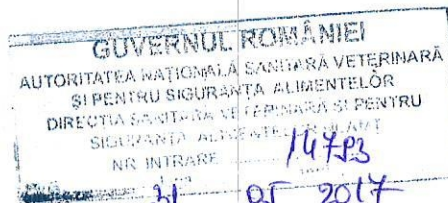 GUVERNUL ROMÂNIEI
AUTORITATEA NAȚIONALĂ SANITARĂ VETERINARĂ
ȘI PENTRU SIGURANȚA ALIMENTELOR
DIRECȚIA SANITARĂ VETERINARĂ ȘI PENTRU
SIGURANȚA ALIMENTELOR
NR. INTRARE
31 05 2017